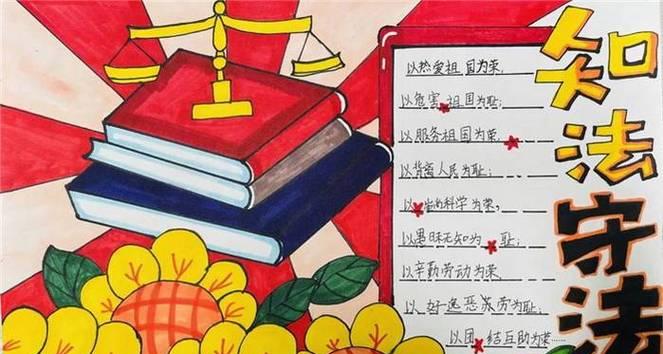 知法守法
以热爱祖国为荣;
以危害祖国为耻;
以服务祖国为荣,
以背离人民为耻;
以科学为荣,
以愚昧无知为耻;
以辛勤劳动为荣
以好逸恶劳为耻;
以团结互助为荣……